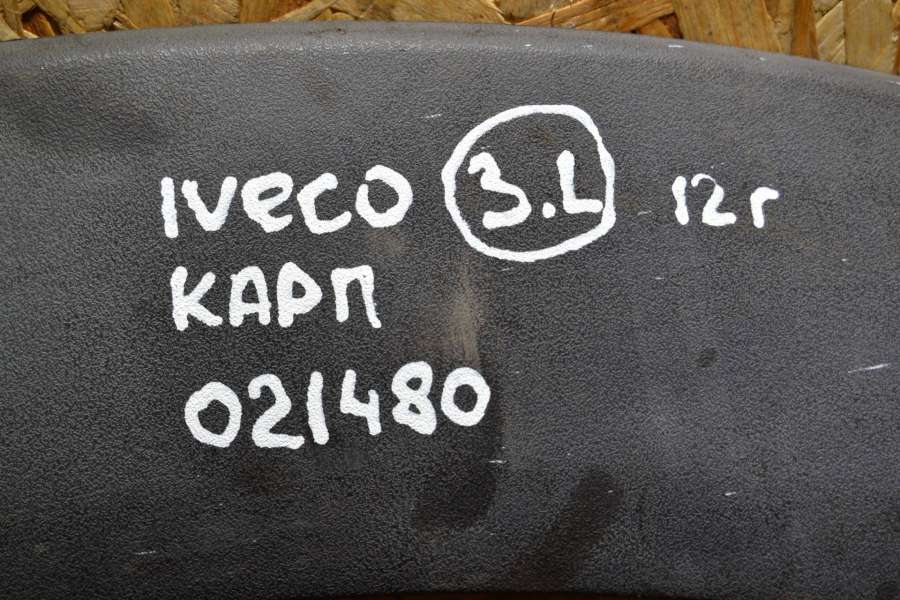 IVECO 3.L 12г
КАРП
021480